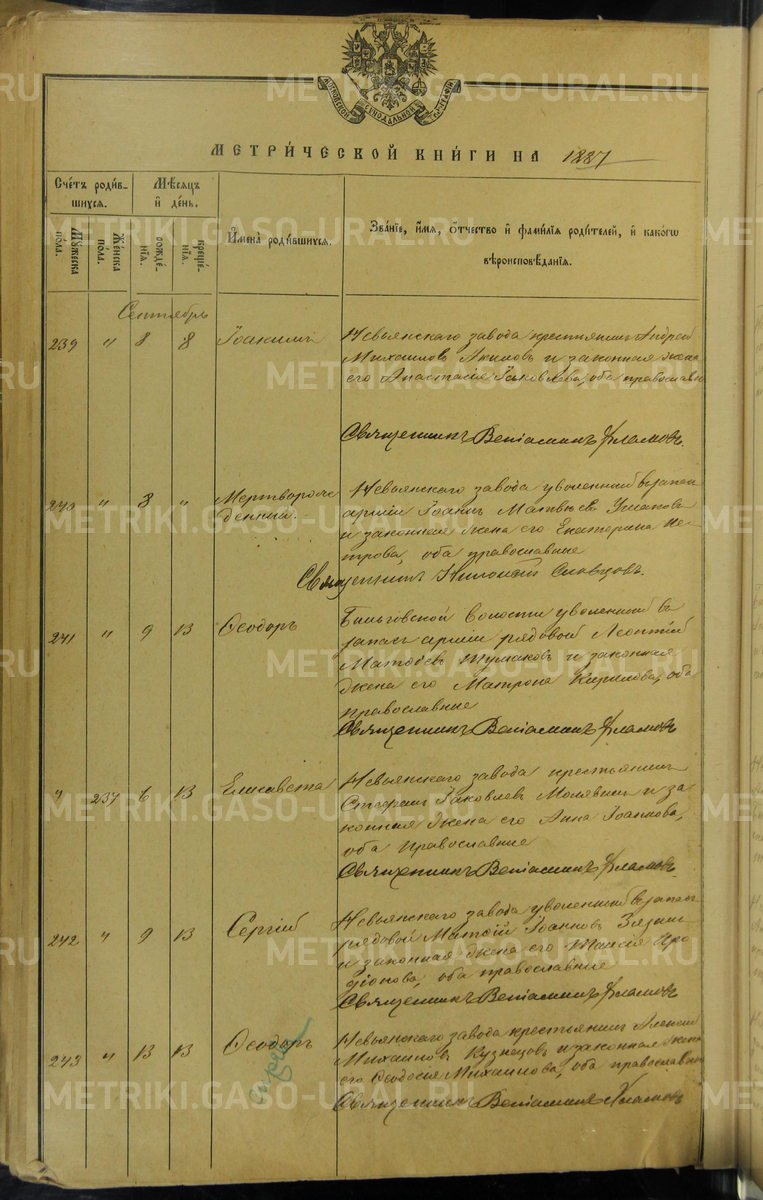 МОСКОВСКОЙ СѴНОДАЛЬНОЙ ТѴПОГРАФІИ
METRIKI.GASO-URAL.RU
МЕТРИ́ЧЕСКОЙ КНИ́ГИ НА 1887
Сче́тъ роди́вшихся.
Мѣ́сяцъ и де́нь.
И҆мена̀ роди́вшихся.
Зва́ніе, и҆́мя, ѻ҆́тчество и҆ фами́лія роди́телей, и҆ како́гѡ вѣроисповѣ́данія.
Му́жеска по́ла.
Же́нска по́ла.
рожде́нія.
креще́нія.
Сентябрь
239 " 8 8 Іоакимъ
Невьянскаго завода крестьянинъ Андрей
Михаиловъ Акимовъ и законная жена
его Анастасія Іаковлева, оба православн
Священникъ Веніаминъ
240 " 8 " Мертворож
денный.
Невьянскаго завода уволенный въ запас
арміи Іоаннъ Матвѣевъ Ушаковъ
и законная жена его Екатерина Пе-
трова, оба православные
Священникъ Словцовъ.
241 " 9 13 Ѳеодоръ
волости уволенный въ
запасъ арміи рядовой Леонтій
Матѳіевъ и законная
жена его Матрона Кирилова, оба
православные
Священникъ Веніаминъ
" 237 6 13 Елисавета
Невьянскаго завода крестьянинъ
Стефанъ Іаковлевъ и за-
конная жена его Анна Іоаннова,
оба православные
Священникъ Веніаминъ
242 " 9 13 Сергій
Невьянскаго завода уволенный въ запасъ
рядовой Матѳій Іоанновъ
и законная жена его Таисія Иро
діонова, оба православные
Священникъ Веніаминъ
243 " 13 13 Ѳеодоръ
Невьянскаго завода крестьянинъ Алексій
Михаиловъ Кузнецовъ и законная жена
его Ѳеодосія Михаилова, оба православн
Священникъ Веніаминъ